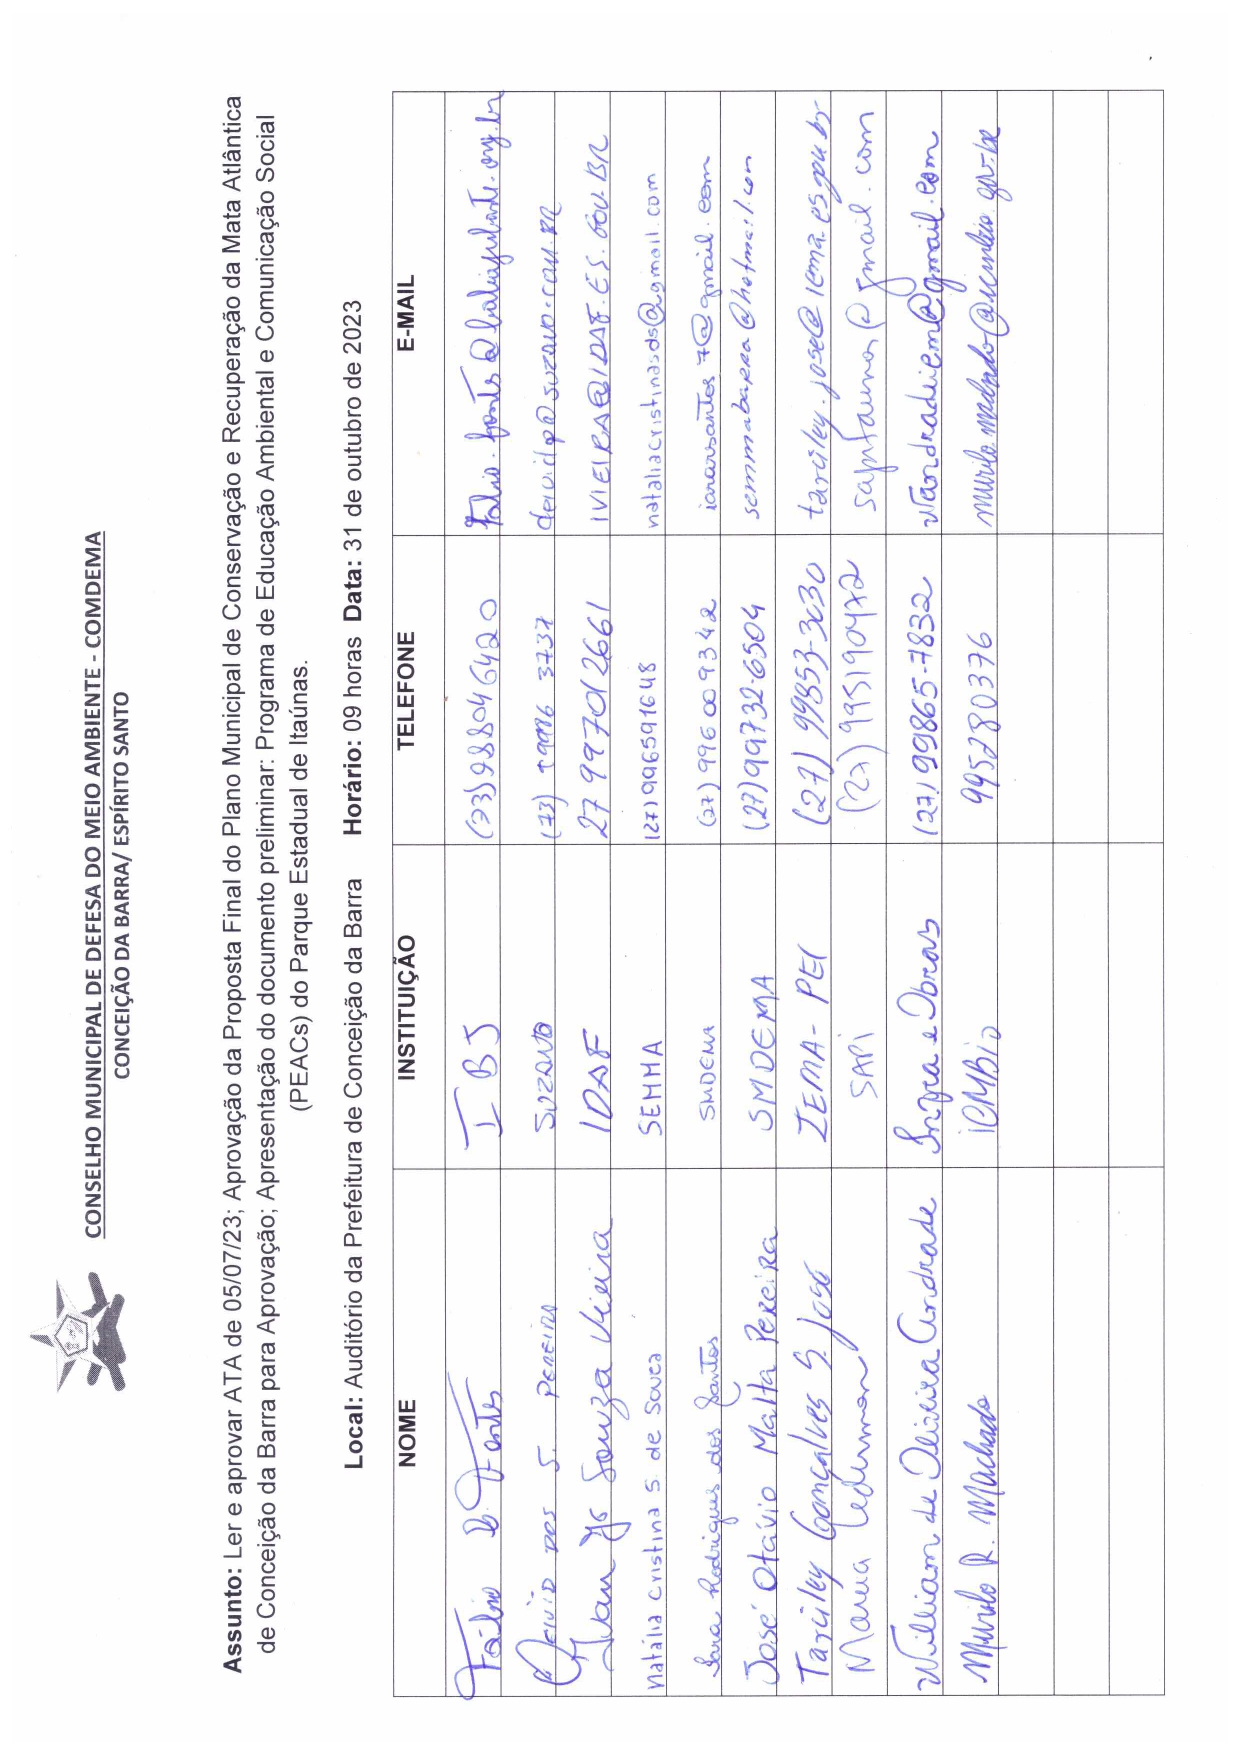 CONSELHO MUNICIPAL DE DEFESA DO MEIO AMBIENTE - COMDEMA
CONCEIÇÃO DA BARRA/ ESPÍRITO SANTO
Assunto: Ler e aprovar ATA de 05/07/23; Aprovação da Proposta Final do Plano Municipal de Conservação e Recuperação da Mata Atlântica
de Conceição da Barra para Aprovação; Apresentação do documento preliminar: Programa de Educação Ambiental e Comunicação Social
(PEACs) do Parque Estadual de Itaúnas.
Local: Auditório da Prefeitura de Conceição da Barra Horário: 09 horas Data: 31 de outubro de 2023
NOME INSTITUIÇÃO TELEFONE E-MAIL
Fábio Fontes IBJ (73)988046420
S. Pereira Suzano
Souza Vieira IDAF 27 997012661 IVIEIRA@IDAF.ES.GOV.BR
Natália Cristina S. de Souza SEMMA (27)996591648 nataliacristinasds@gmail.com
Iara Rodrigues dos Santos SMDEMA (27) 996009342 iararsantos7@gmail.com
José Otávio Malta Pereira SMDEMA (27)99732-6504 semmabarra@hotmail.com
Tarciley Gonçalves S. José IEMA-PEI (27) 99853-3030 tarciley.jose@iema.es.gov.br
SAPI (27) 995190472
William de Oliveira Andrade Infra e Obras (27) 99865-7832 wandradeiem@gmail.com
Murilo R. Machado ICMBio 995280376 murilo.machado@icmbio.gov.br